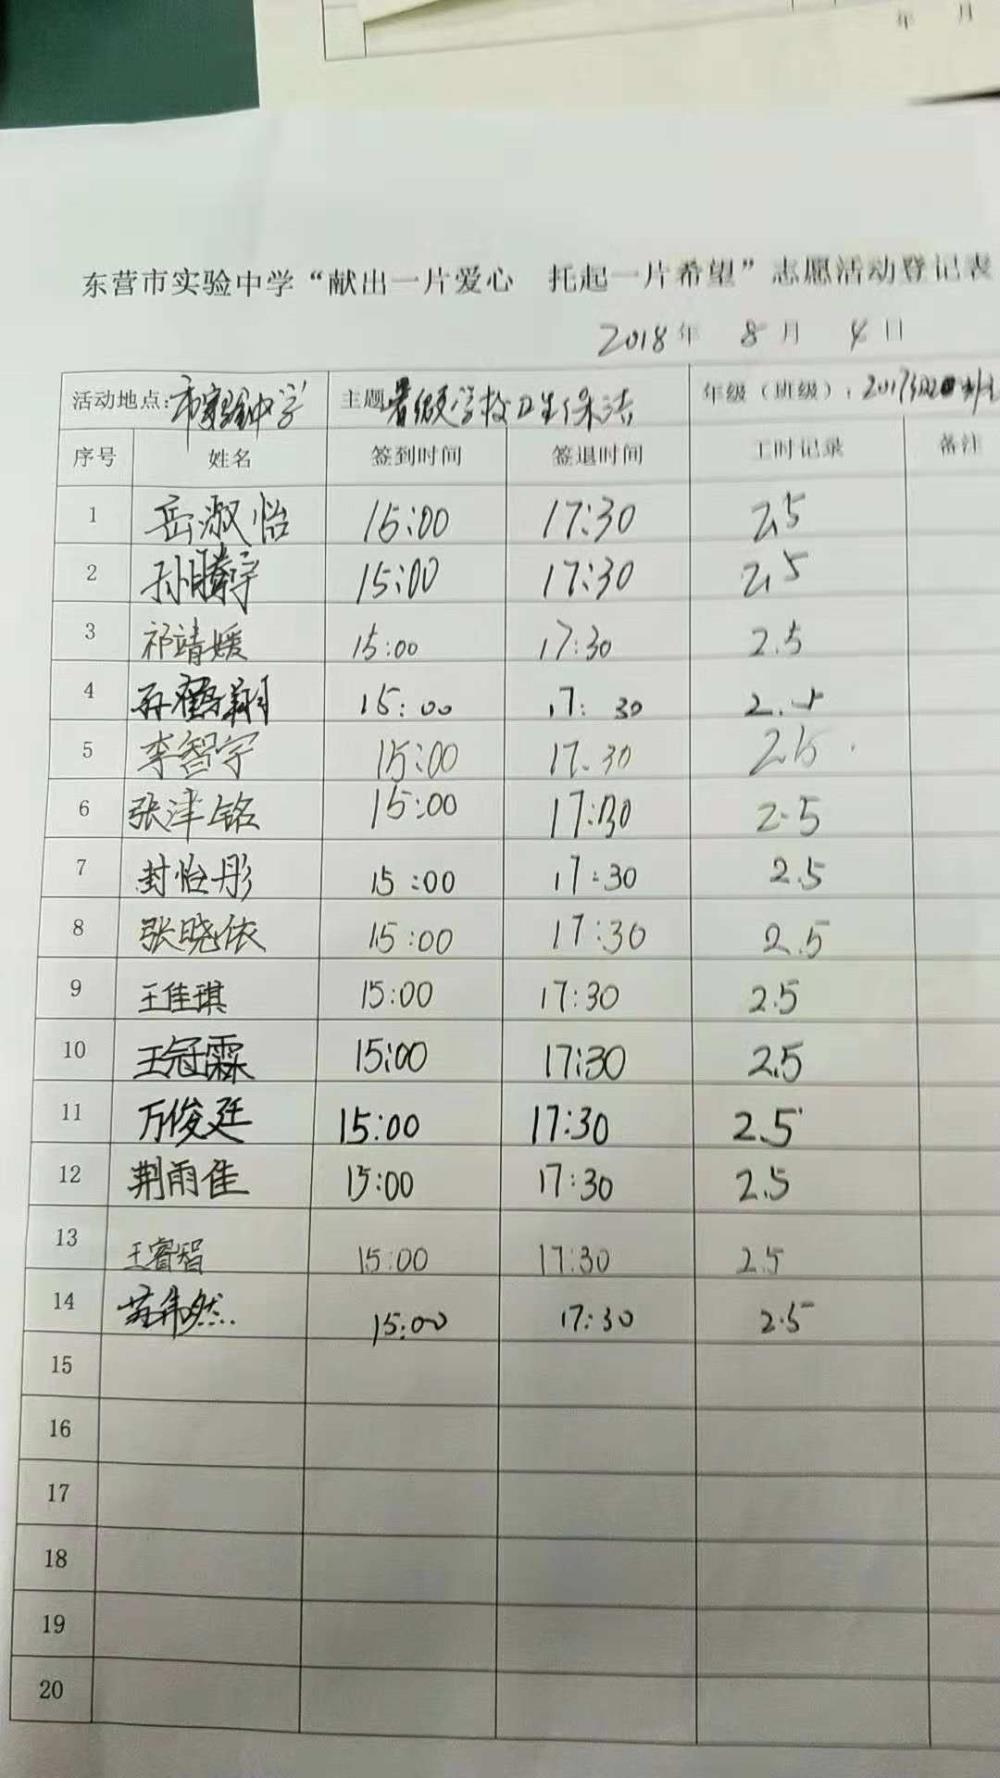 年 月
东营市实验中学“献出一片爱心 托起一片希望”志愿活动登记表
2018年 8月 4日
活动地点:市实验中学 主题 暑假学校卫生保洁 年级（班级）：2017级
序号 姓名 签到时间 签退时间 工时记录 备注
1 岳淑怡 15:00 17:30 2.5
2 孙腾宇 15:00 17:30 2.5
3 祁靖媛 15:00 17:30 2.5
4 孙鹤翔 15:00 17:30 2.5
5 李智宇 15:00 17.30 2.5
6 张津铭 15:00 17:30 2.5
7 封怡彤 15:00 17:30 2.5
8 张晓依 15:00 17:30 2.5
9 王佳琪 15:00 17:30 2.5
10 王冠霖 15:00 17:30 2.5
11 万俊廷 15:00 17:30 2.5
12 荆雨佳 15:00 17:30 2.5
13 王睿智 15:00 17:30 2.5
14 苗伟然 15:00 17:30 2.5
15
16
17
18
19
20